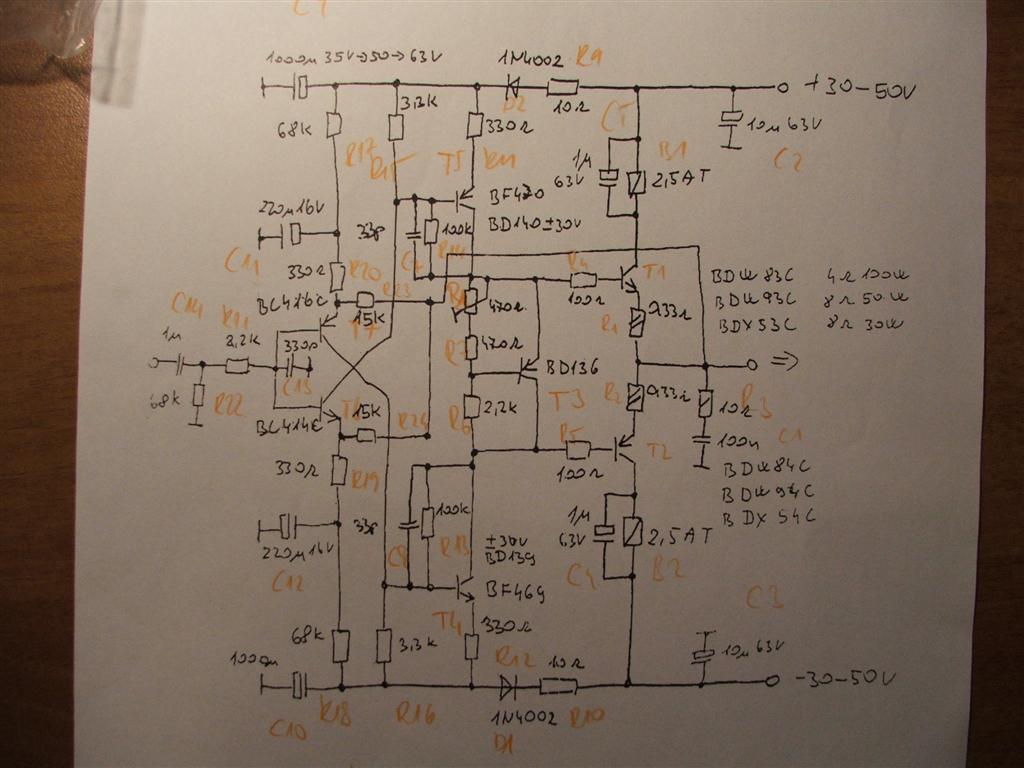 C4
1000µ 35V→50→63V
1N4002 R9
D2
10Ω
+30-50V
68K
3,3K
330Ω
C5
10µ 63V
C2
R17
R15
T5
R11
1µ
63V
B1
2,5AT
BF470
BD140 ±30V
220µ16V
33p
100K
C11
C7
R14
330Ω
R20
R23
R8
470Ω
R4
100Ω
T1
BDW 83C 4Ω 100W
BDW 93C 8Ω 50W
BDX 53C 8Ω 30W
C14
R21
BC416C
15K
0,33Ω
R1
1µ
8,2K
330p
T7
470Ω
R7
BD136
⇒
C13
68K
R22
BC414C
T6
15K
R24
2,2K
R6
T3
R2
0,33Ω
10Ω
R3
330Ω
R19
R5
100Ω
T2
100n
C1
BDW 84C
BDW 94C
BDX 54C
220µ16V
C12
33p
100K
C8
R13
±30V
BD139
1µ
63V
2,5AT
C4
B2
BF469
T4
C3
68K
3,3K
330Ω
R12
10µ 63V
1000µ
10Ω
-30-50V
C10
R18
R16
1N4002 R10
D1